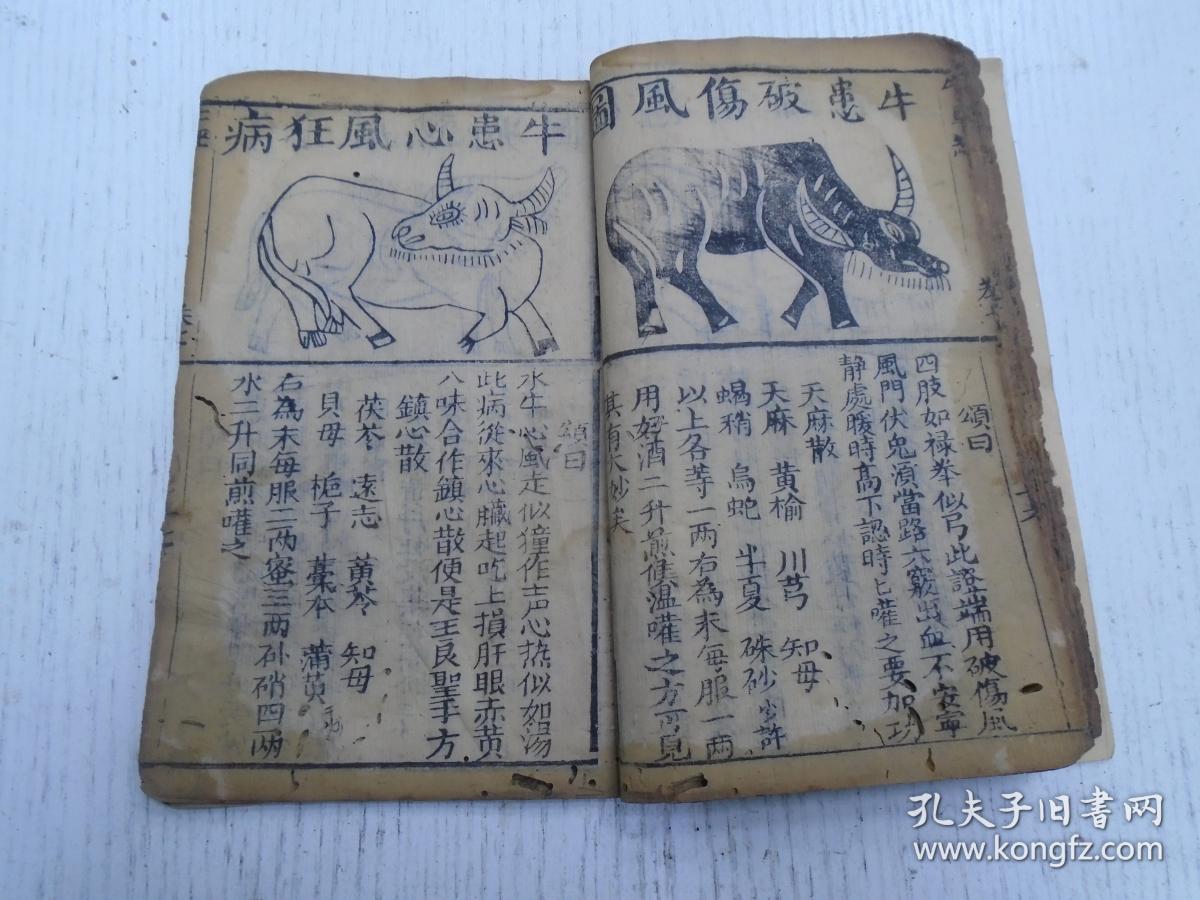 牛患破傷風圖
頌曰
四肢如禄拳似弓此證端用破傷風
風門伏兔湏當路六竅出血不安寧
静處暖時高下認時匕嚾之要加功
天麻散
天麻 黄榆 川芎 知母
蝎稍 烏蛇 半夏 硃砂少許
以上各等一两右為末每服一两
用好酒二升煎候温嚾之方可見
其有大妙矣
牛患心風狂病
頌曰
水牛心風走似獐作声心热似如湯
此病從來心臟起吃上損肝眼赤黄
八味合作鎮心散便是王良聖手方
鎮心散
茯苓 遠志 黄芩 知母
貝母 梔子 藁本 蒲黄
右為末每服二两蜜三两朴硝四两
水二升同煎嚾之
孔夫子旧书网
www.kongfz.com